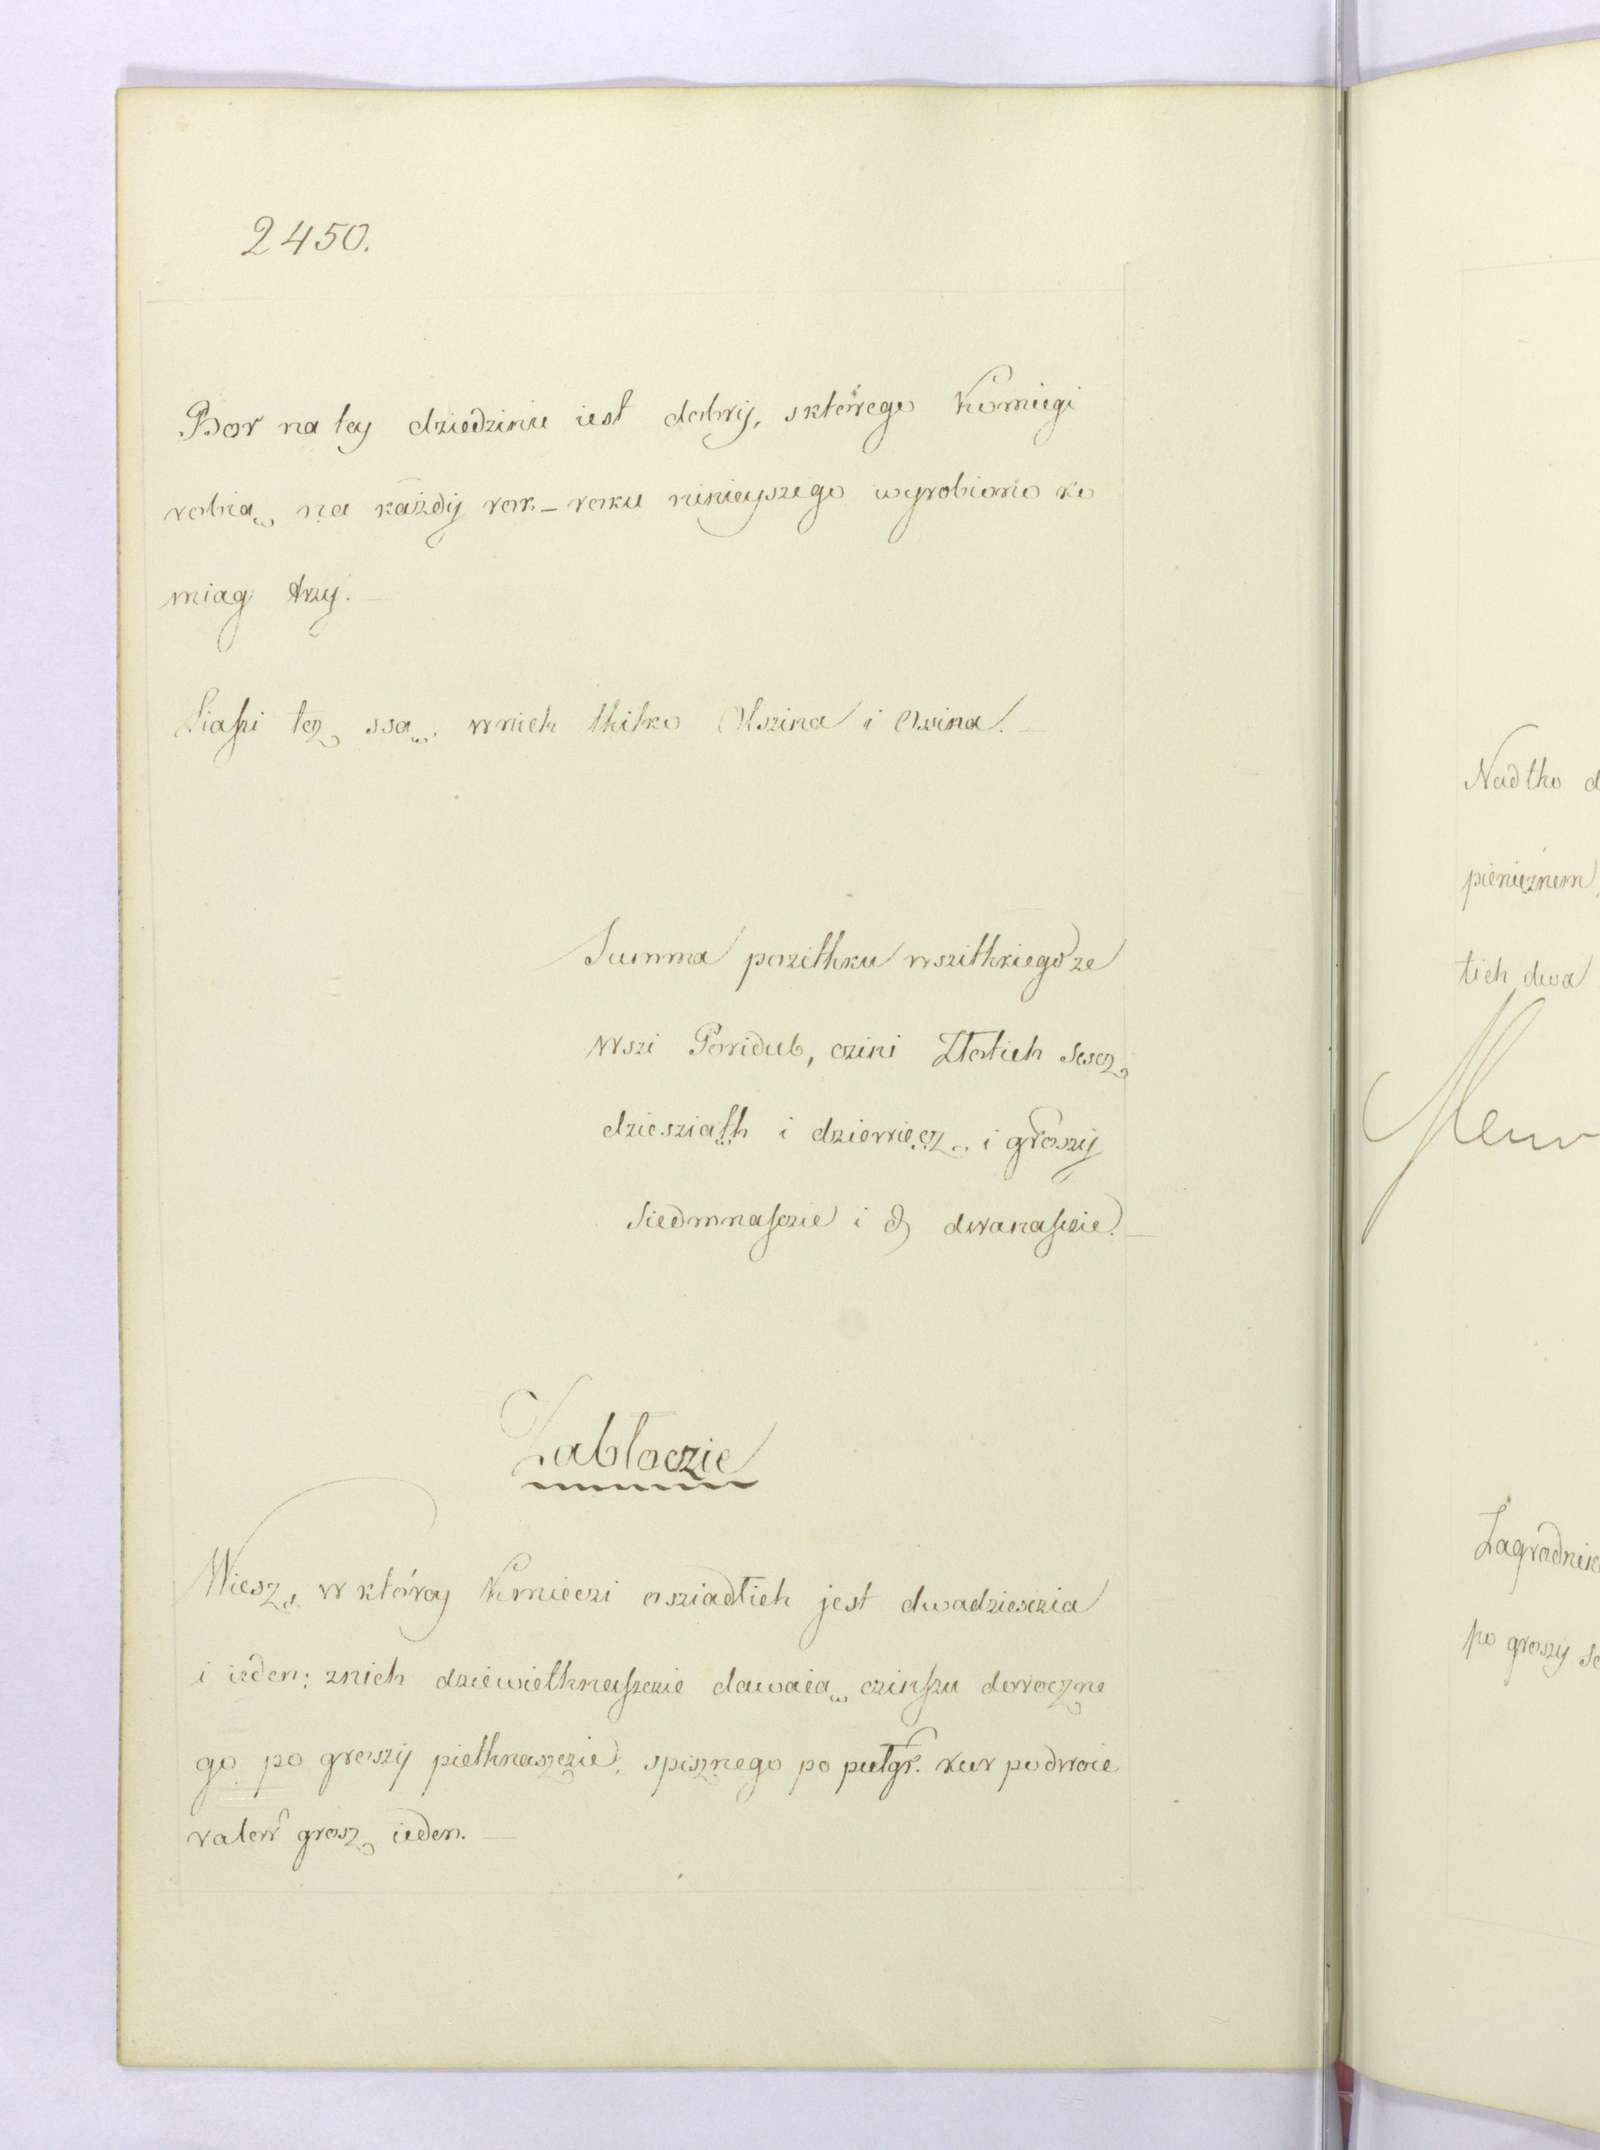 2450.
Bor na tey dziedzinie iest dobrij, s którego Komiegi
robią na każdij rok – roku ninieyszego wyrobiono ko
miag trzy. –
Liassi tez ssą, w nich thilko Olszina i Ossina. –
Summa pozithku wszitkiego ze
wszi Powidub, czini Złotich sescz
dziesziath i dziewięcz i groszij
siedmnasczie i ₰ dwanasczie. –
Zabłoczie
Wiesz, w którey Kmieczi osziadlich jest dwadziesczia
i ieden; znich dziewiethnasczie dawaią czinszu doroczne
go po groszij piethnasczie, spisznego po pułgr. kur podwoie
valen grosz ieden. –
Nadtho d
pienieznem
tich dwa
Zagrodnik
po groszy se